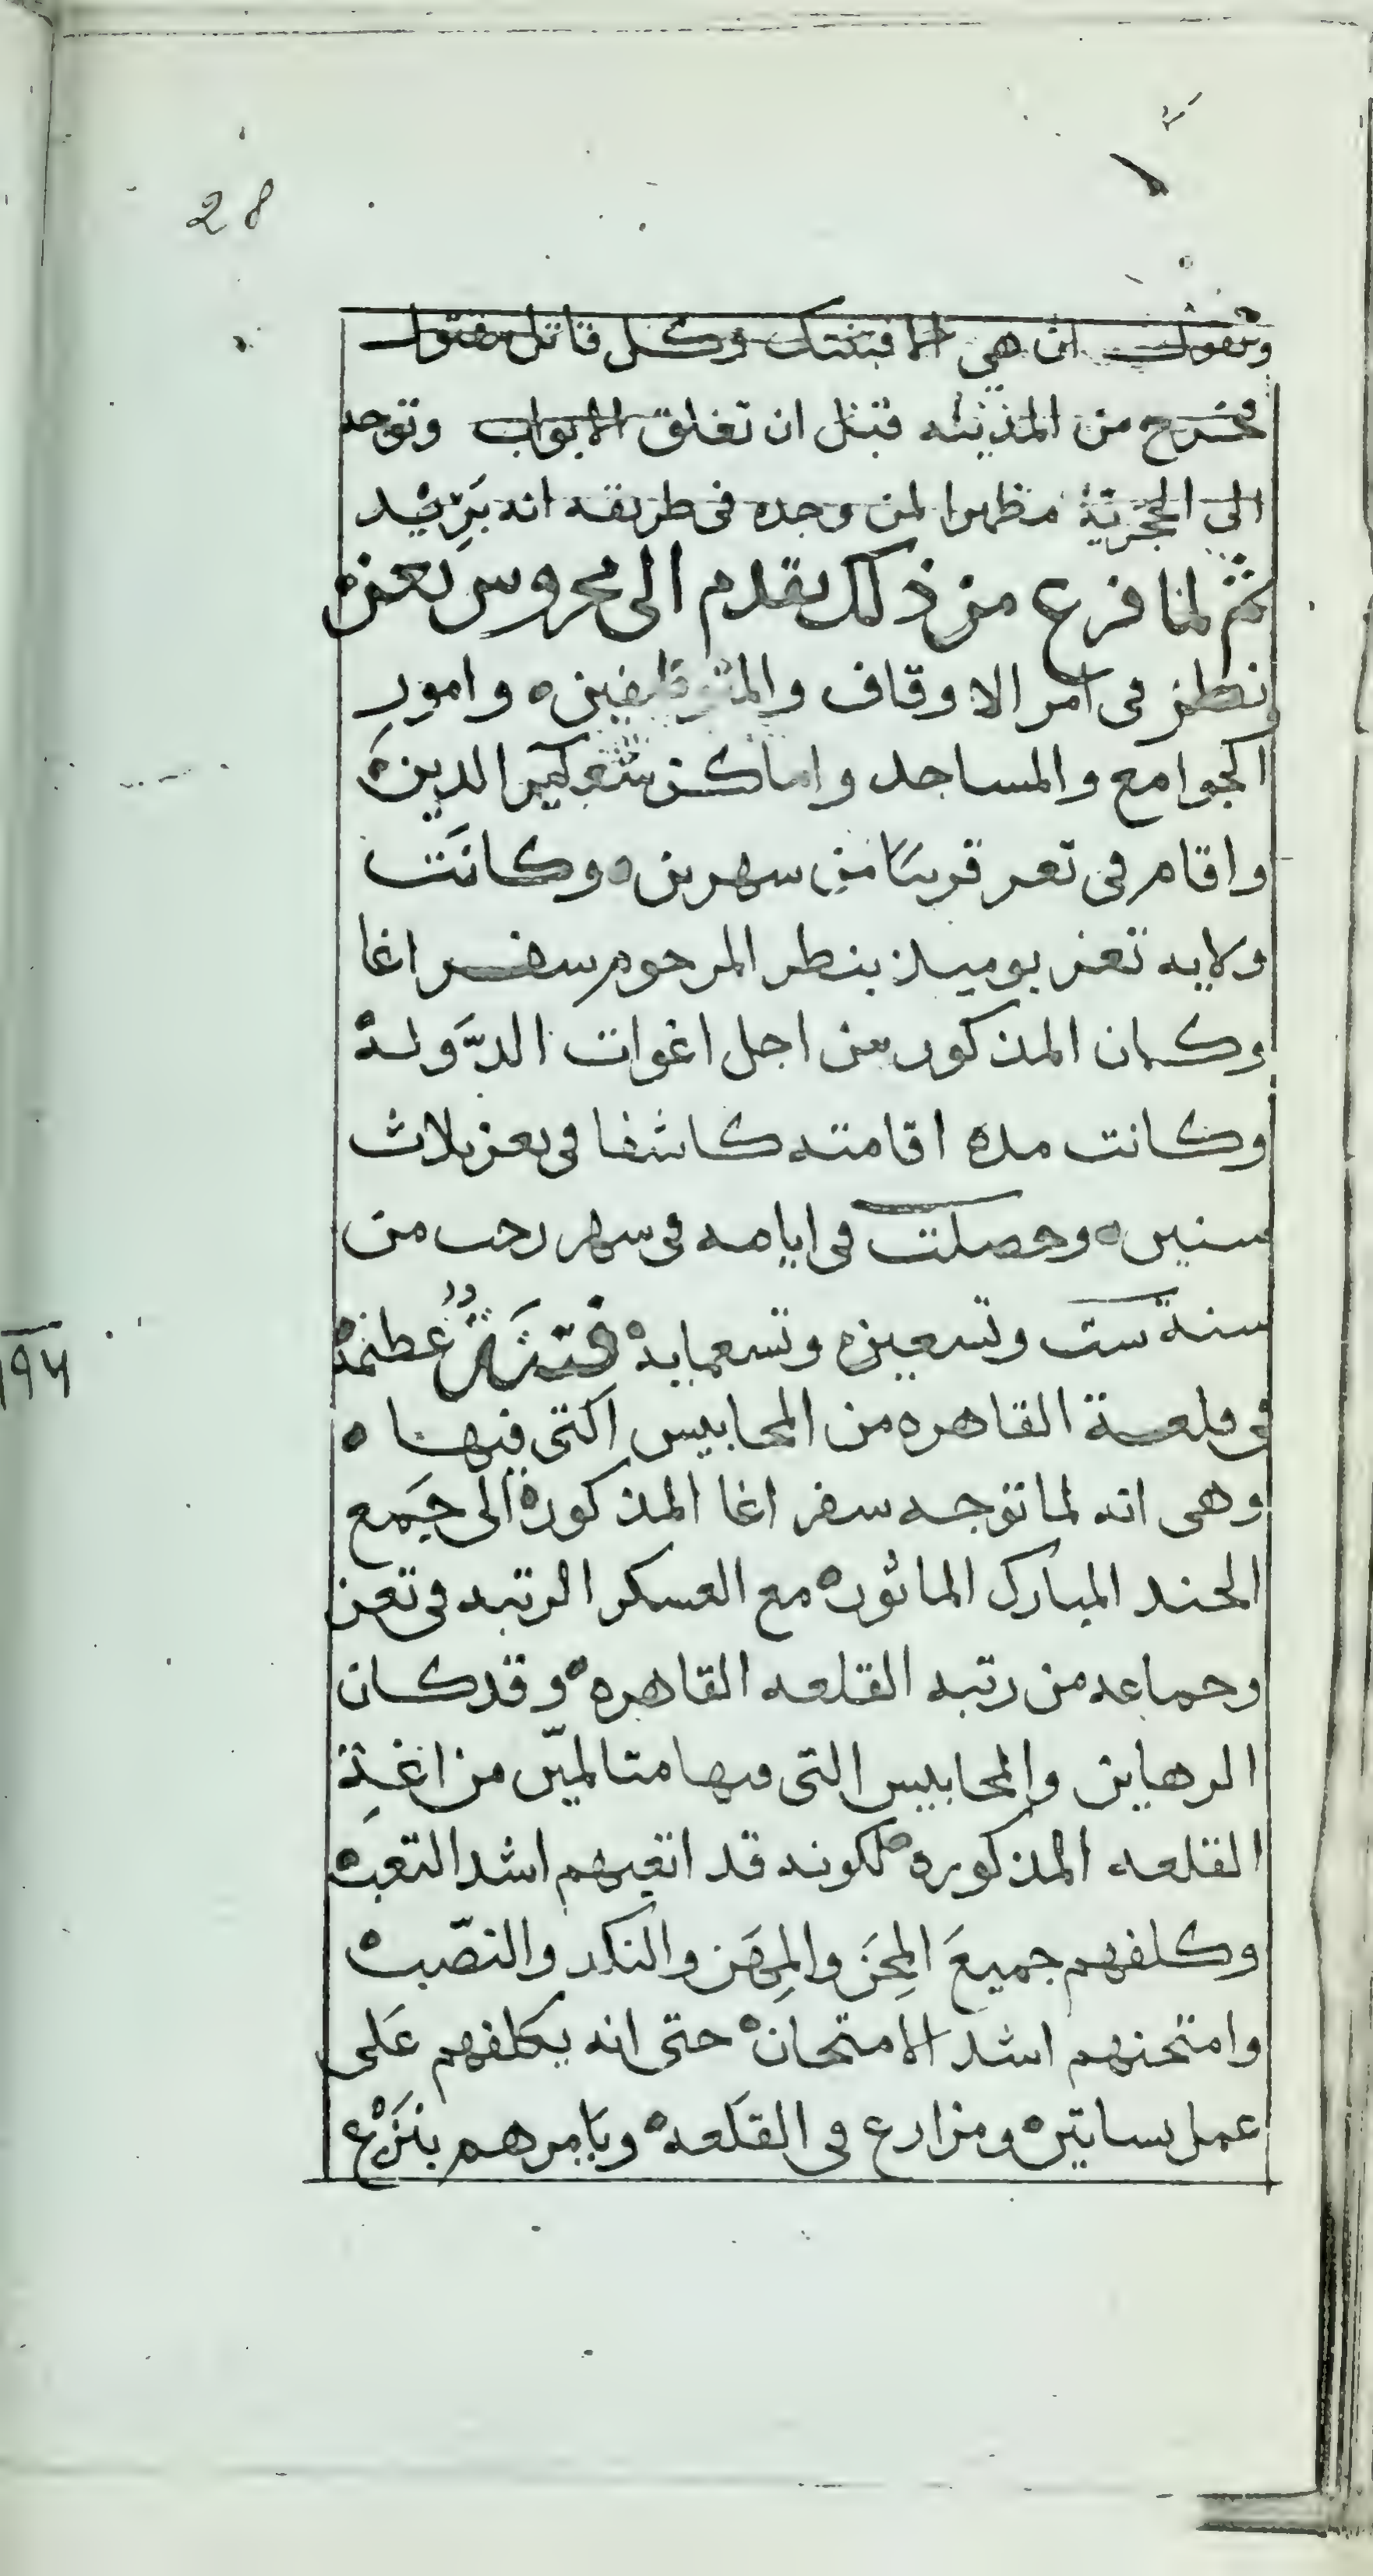 28
ويقول ان هي الا فتنتك وكل قاتل مقتول
فخرج من المدينه قبل ان تغلق الابواب وتوجه
الى الحجرية مظهرا لمن وجده في طريقه انه بريد
ثم لما فرغ من ذلك تقدم الى محروس تعزه
ونظر في امر الاوقاف والمتوظفين ه وامور
الجوامع والمساجد واماكن شعاير الدين ه
واقام في تعز قريبا من شهرين ه وكانت
ولايه تعز يوميذ بنظر المرحوم سفر اغا
وكان المذكور من اجل اغوات الدولة
وكانت مده اقامته كاشفا في تعز ثلاث
سنين ه وحصلت في ايامه في شهر رجب من
سنة ست وتسعين وتسعمايه فتنة عظيمة
في قلعة القاهره من المحابيس التي فيها ه
وهي انه لما توجه سفر اغا المذكور ه الى جمع
الجند المبارك الماثور ه مع العسكر الرتبه في تعز
وجماعه من رتبه القلعه القاهره ه وقد كان
الرهاين والمحابيس التي فيها متالمين من اغة
القلعه المذكوره ه لكونه قد اتعبهم اشد التعب ه
وكلفهم جميع المحن والمهن والنكد والنصب ه
وامتحنهم اشد الامتحان ه حتى انه يكلفهم على
عمل بساتين ه ومزارع في القلعه ه ويامرهم بنزع